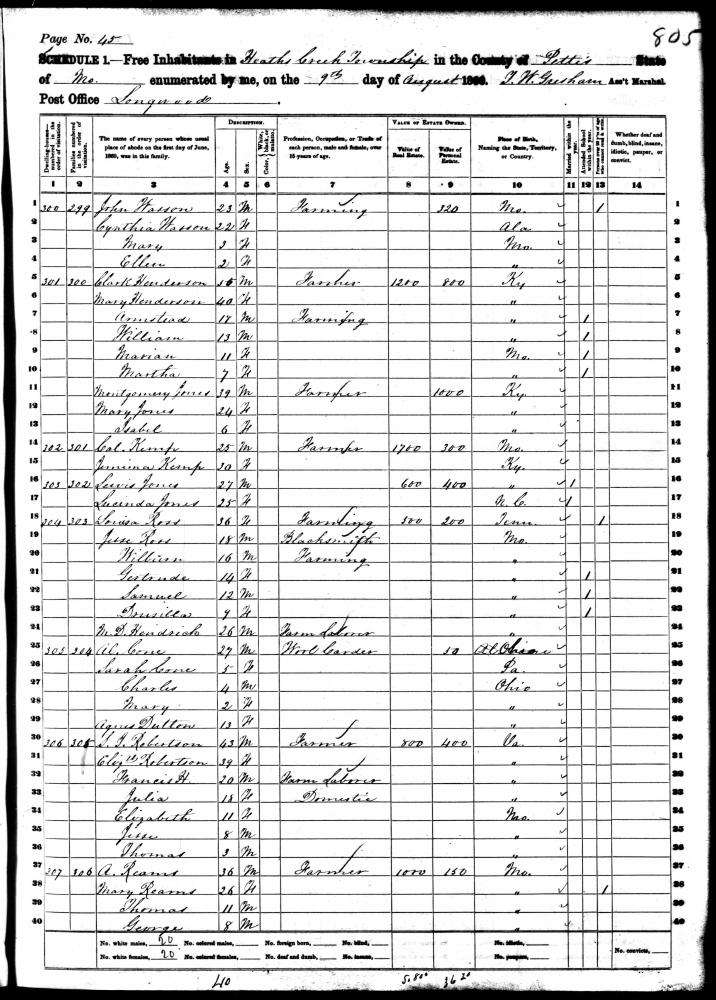 Page No. 45
805
SCHEDULE 1.—Free Inhabitants in Heaths Creek Township in the County of Pettis State
of Mo. enumerated by me, on the 9th day of August 1860. T. W. Gresham Ass't Marshal.
Post Office Longwood
Dwelling-houses—numbered in the order of visitation.
Families numbered in the order of visitation.
The name of every person whose usual place of abode on the first day of June, 1860, was in this family.
DESCRIPTION.
Age.
Sex.
Color, White, black, or mulatto.
Profession, Occupation, or Trade of each person, male and female, over 15 years of age.
VALUE OF ESTATE OWNED.
Value of Real Estate.
Value of Personal Estate.
Place of Birth, Naming the State, Territory, or Country.
Married within the year.
Attended School within the year.
Whether deaf and dumb, blind, insane, idiotic, pauper, or convict.
1 2 3 4 5 6 7 8 9 10 11 12 13 14
1 300 299 John Wasson 23 M Farming 320 Mo. 1 1
2 Cynthia Wasson 22 F Ala 2
3 Mary 3 F Mo. 3
4 Ellen 2 F " 4
5 301 300 Clark Henderson 55 M Farmer 1200 800 Ky 5
6 Mary Henderson 40 F " 6
7 Armstead 17 M Farming " 1 7
8 William 13 M " 1 8
9 Marian 11 F Mo. 1 9
10 Martha 7 F " 1 10
11 Montgomery Jones 39 M Farmer 1000 Ky. 11
12 Mary Jones 24 F " 12
13 Isabel 6 F " 13
14 302 301 Cal. Kemp 25 M Farmer 1700 300 Mo. 14
15 Jemima Kemp 30 F Ky. 15
16 303 302 Lewis Jones 27 M 600 400 " 1 16
17 Lucinda Jones 25 F N. C. 1 17
18 304 303 Louisa Ross 36 F Farming 500 200 Tenn. 1 18
19 Jesse Ross 18 M Blacksmith Mo. 19
20 Wilburn 16 M Farming " 20
21 Gertrude 14 F " 1 21
22 Samuel 12 M " 1 22
23 Drusilla 9 F " 1 23
24 M. D. Hendrick 26 M Farm Laborer " 24
25 305 304 Al. Cone 27 M Wool Carder 50 Ohio 25
26 Sarah Cone 5 F Pa. 26
27 Charles 4 M Ohio 27
28 Mary 2 F " 28
29 Agnes Dutton 13 F " 29
30 306 305 S. T. Robertson 43 M Farmer 800 400 Va. 30
31 Elizth Robertson 39 F " 31
32 Francis H. 20 M Farm Laborer " 32
33 Julia 18 F Domestic " 33
34 Elizabeth 11 F Mo. 34
35 Jesse 8 M " 35
36 Thomas 3 M " 36
37 307 306 A. Reams 36 M Farmer 1000 150 Mo. 37
38 Mary Reams 26 F " 1 38
39 Thomas 11 M " 39
40 George 8 M " 40
No. white males, 20 No. colored males, No. foreign born, No. blind, No. idiotic,
No. white females, 20 No. colored females, No. deaf and dumb, No. insane, No. paupers, No. convicts,
40 5,800 3620